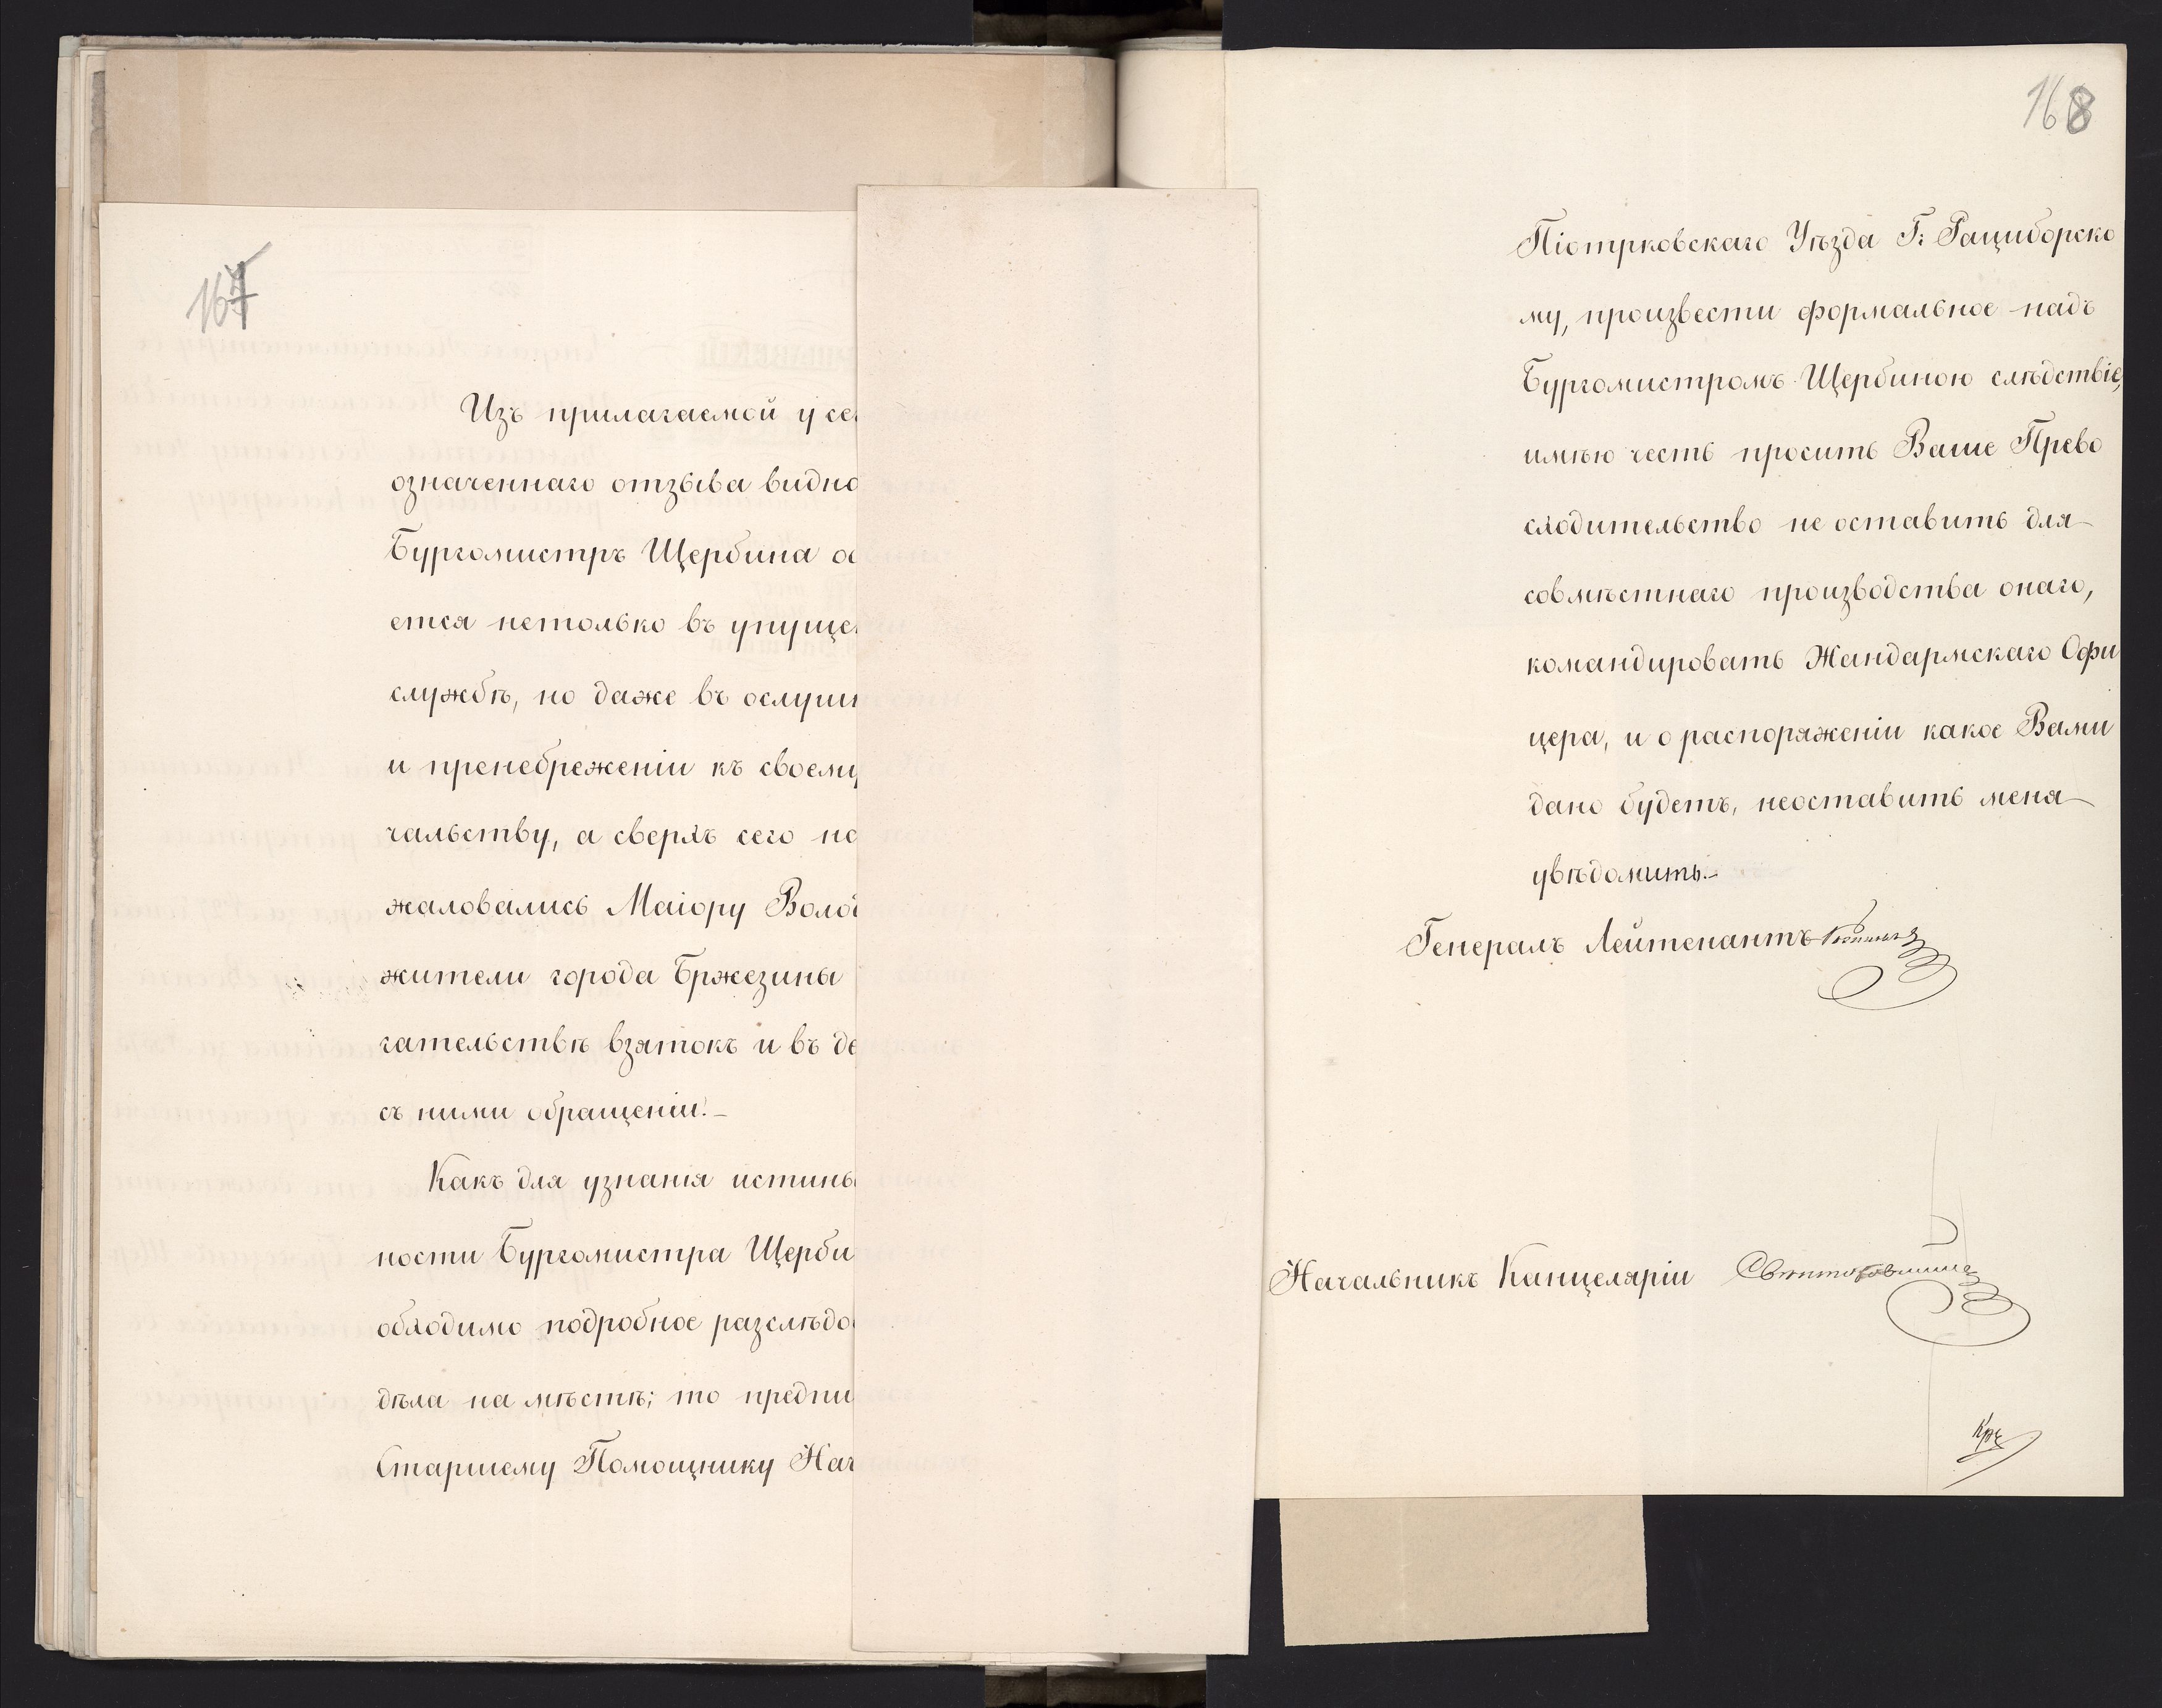 167
Изъ прилагаемой у се
означеннаго отзыва видно
Бургомистръ Щербина о
ется нетолько въ упуще
службѣ, но даже въ ослуш
и пренебреженіи къ своему
чальству, а сверхъ сего но
жаловались Маіору Воло
жители города Бржезины
гательствѣ взятокъ и въ де
съ ними обращеніи.—
Какъ для узнанія истины
ности Бургомистра Щерби
обходимо подробное разслѣдо
дѣла на мѣстѣ; то предпи
Старшему Помощнику Нач
168
Піотрковскаго Уѣзда Г: Рациборско
му, произвести формальное надъ
Бургомистромъ Щербиною слѣдствіе,
имѣю честь просить Ваше Прево
сходительство не оставить для
совмѣстнаго производства онаго,
командировать Жандармскаго Офи
цера, и о распоряженіи какое Вами
дано будетъ, неоставить меня
увѣдомить.—
Генералъ Лейтенантъ
Начальникъ Канцеляріи